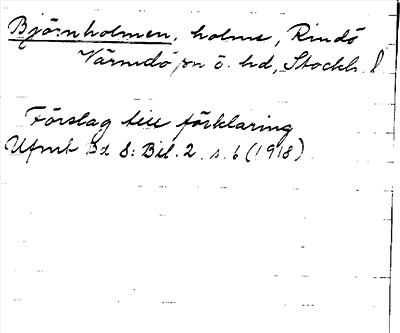 Björnholmen, holme, Rindö
Värmdö sn ö. hd, Stockh. l
Förslag till förklaring
Ufmt Bd 8: Bil. 2. s. 6 (1918)